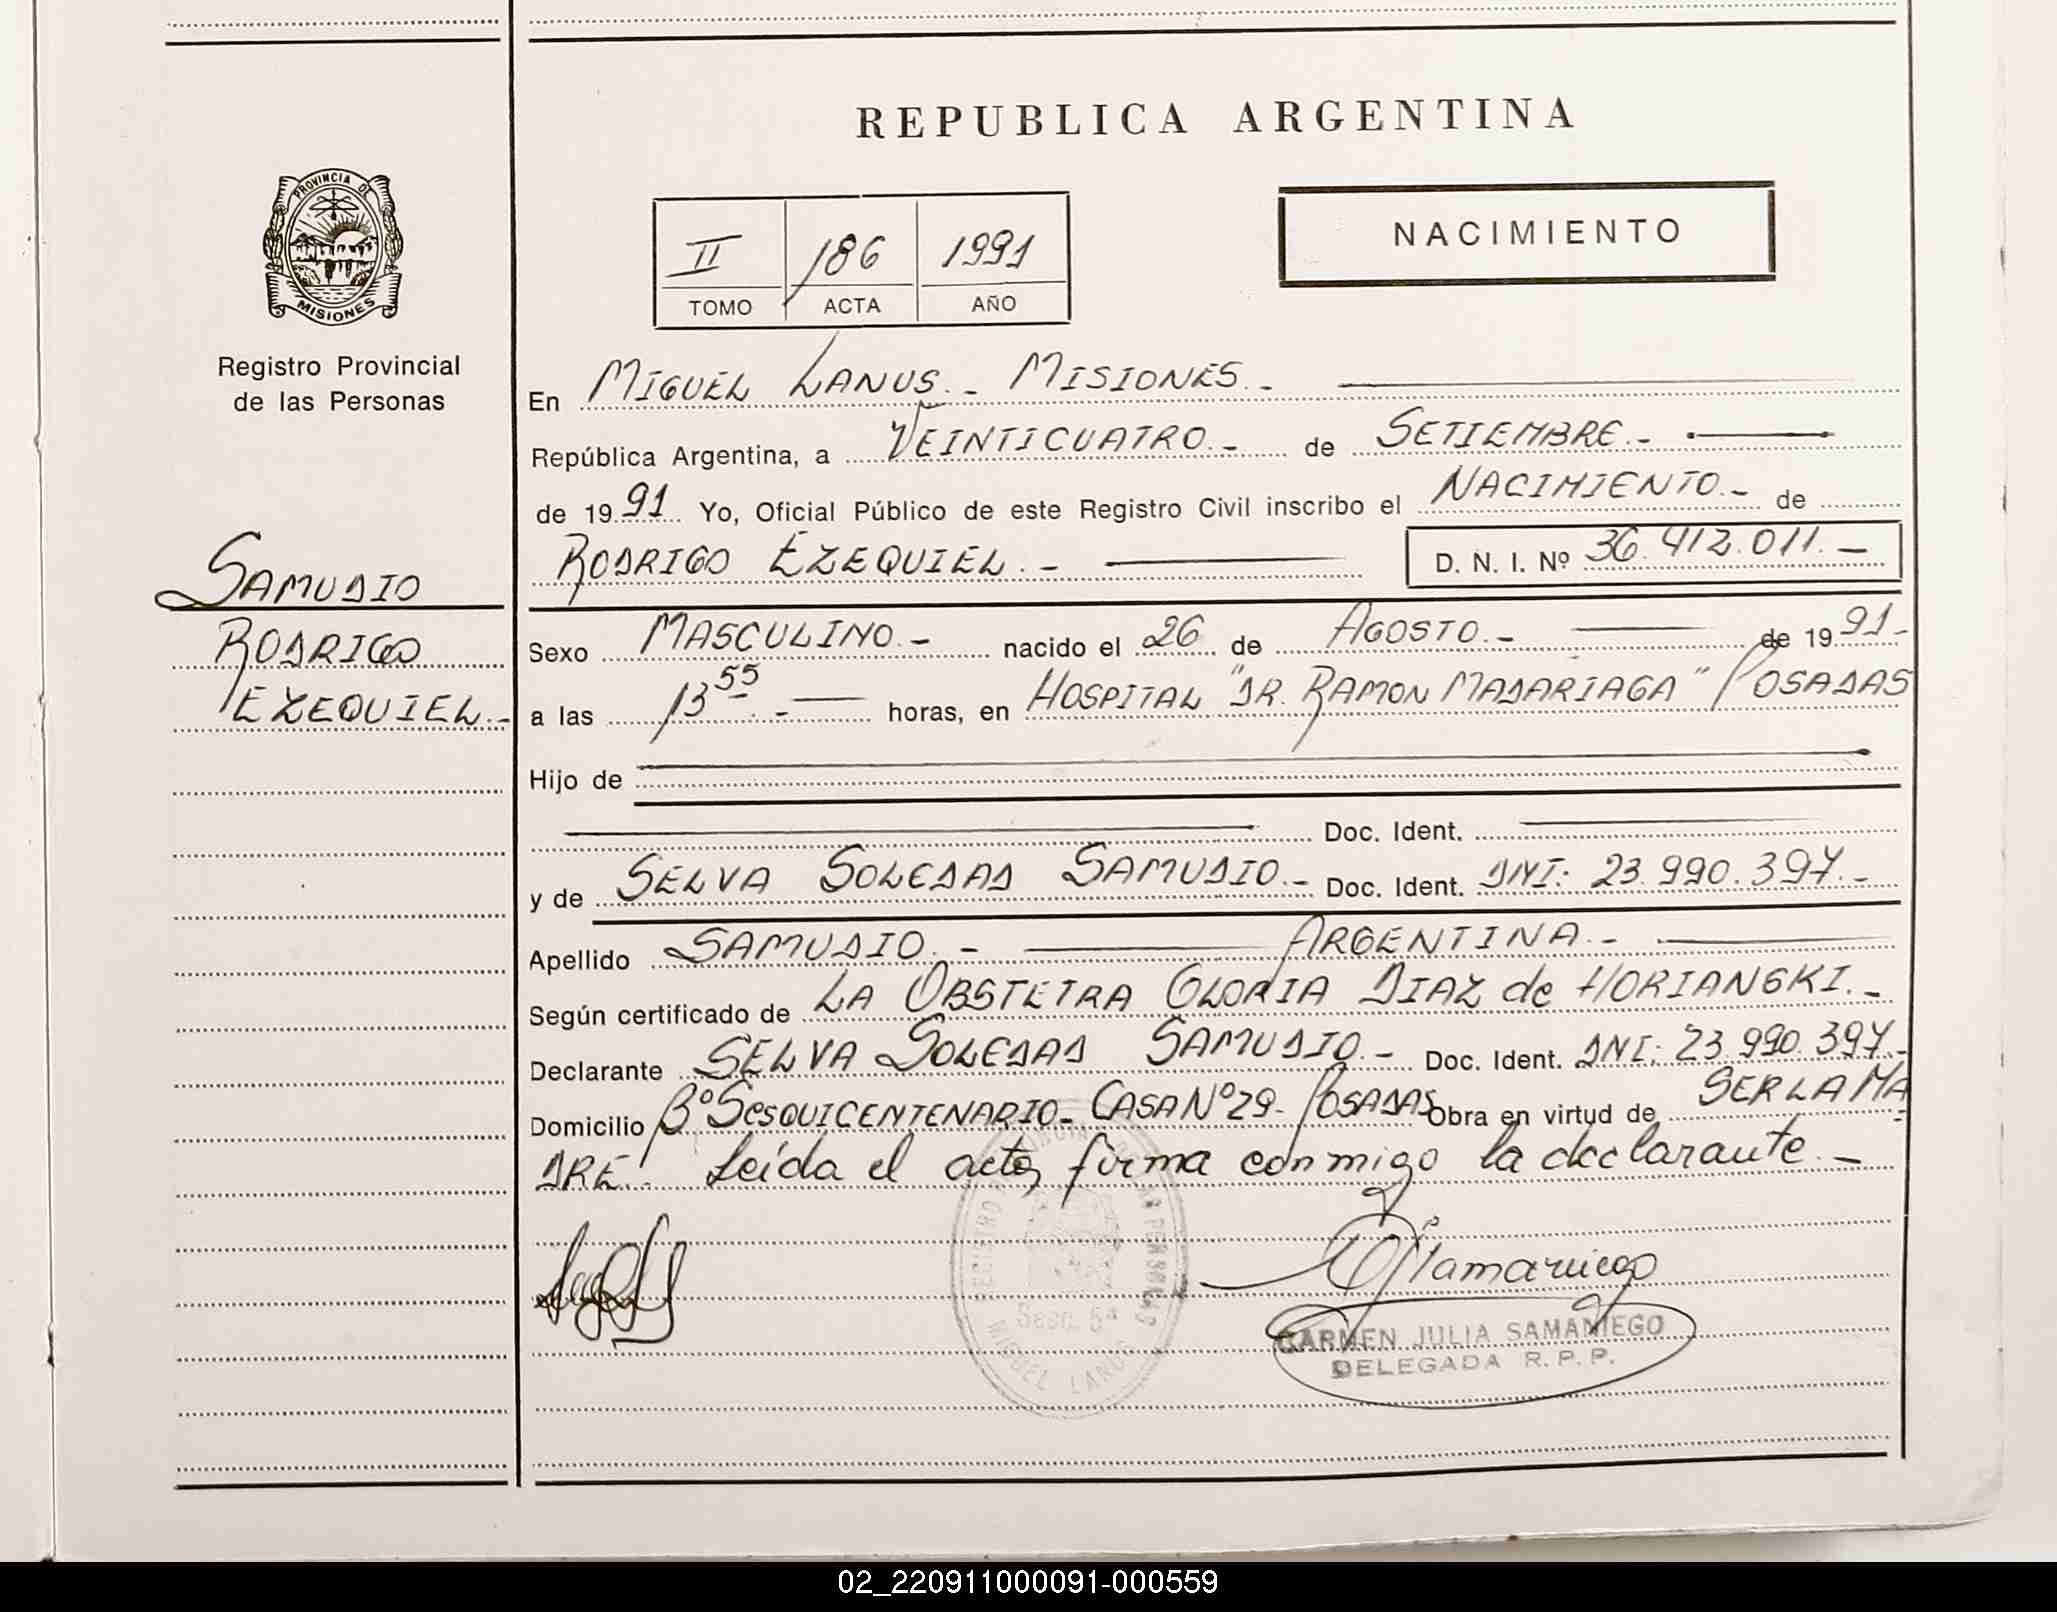 REPUBLICA ARGENTINA
PROVINCIA DE
MISIONES
Registro Provincial
de las Personas
II 186 1991
TOMO ACTA AÑO
NACIMIENTO
En MIGUEL LANUS.- MISIONES.-
República Argentina, a VEINTICUATRO.- de SETIEMBRE.-
de 1991 Yo, Oficial Público de este Registro Civil inscribo el NACIMIENTO.- de
RODRIGO EZEQUIEL.- D. N. I. Nº 36.412.011.-
SAMUDIO
RODRIGO
EZEQUIEL.-
Sexo MASCULINO.- nacido el 26 de AGOSTO.- de 1991-
a las 13 55.- horas, en HOSPITAL "DR. RAMON MADARIAGA" POSADAS
Hijo de
Doc. Ident.
y de SELVA SOLEDAD SAMUDIO.- Doc. Ident. DNI: 23.990.397.-
Apellido SAMUDIO.- ARGENTINA.-
Según certificado de LA OBSTETRA GLORIA DIAZ de HORIANSKI.-
Declarante SELVA SOLEDAD SAMUDIO.- Doc. Ident. DNI: 23.990.397.-
Domicilio Bº SESQUICENTENARIO- CASA Nº 29- POSADAS Obra en virtud de SER LA MA-
DRE. Leída el acta, firma conmigo la declarante.-
REGISTRO PERSONAS
Secc. 5ª
MIGUEL LANUS
CARMEN JULIA SAMANIEGO
DELEGADA R. P. P.
02_220911000091-000559